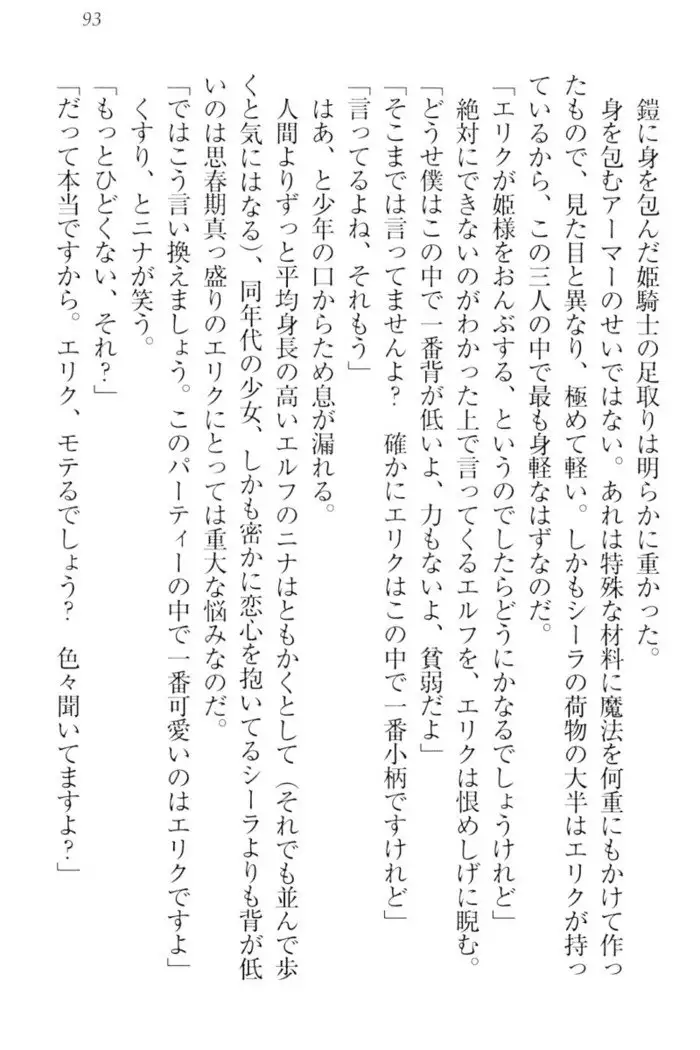 93
鎧に身を包んだ姫騎士の足取りは明らかに重かった。
身を包むアーマーのせいではない。あれは特殊な材料に魔法を何重にもかけて作っ
たもので、見た目と異なり、極めて軽い。しかもシーラの荷物の大半はエリクが持っ
ているから、この三人の中で最も身軽なはずなのだ。
「エリクが姫様をおんぶする、というのでしたらどうにかなるでしょうけれど」
絶対にできないのがわかった上で言ってくるエルフを、エリクは恨めしげに睨む。
「どうせ僕はこの中で一番背が低いよ、力もないよ、貧弱だよ」
「そこまでは言ってませんよ？　確かにエリクはこの中で一番小柄ですけれど」
「言ってるよね、それもう」
はあ、と少年の口からため息が漏れる。
人間よりずっと平均身長の高いエルフのニナはともかくとして（それでも並んで歩
くと気にはなる）、同年代の少女、しかも密かに恋心を抱いてるシーラよりも背が低
いのは思春期真っ盛りのエリクにとっては重大な悩みなのだ。
「ではこう言い換えましょう。このパーティーの中で一番可愛いのはエリクですよ」
くすり、とニナが笑う。
「もっとひどくない、それ？」
「だって本当ですから。エリク、モテるでしょう？　色々聞いてますよ？」